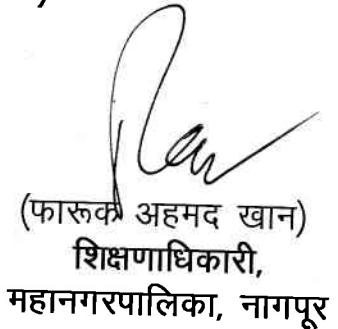 (फारूक अहमद खान)
शिक्षणाधिकारी,
महानगरपालिका, नागपूर